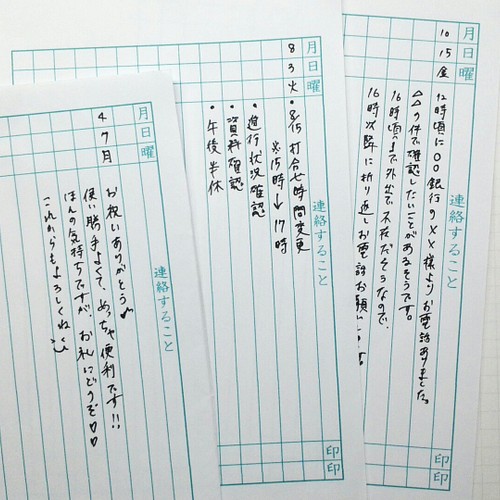 月 10
日 15
曜 金
連絡すること
12時頃に○○銀行の××様よりお電話ありました。
△△の件で確認したいことがあるそうです。
16時頃まで外出で不在だそうなので、
16時以降に折り返しお電話お願いします。
印
印
月 8
日 3
曜 火
連絡すること
・8/15 打合せ時間変更
※15時→17時
・進行状況確認
・資料確認
・午後半休
印
印
月 4
日 7
曜 月
連絡すること
お祝いありがとう♪
使い勝手よくて、めっちゃ便利です!!
ほんの気持ちですが、お礼にどうぞ♡♡
これからもよろしくね